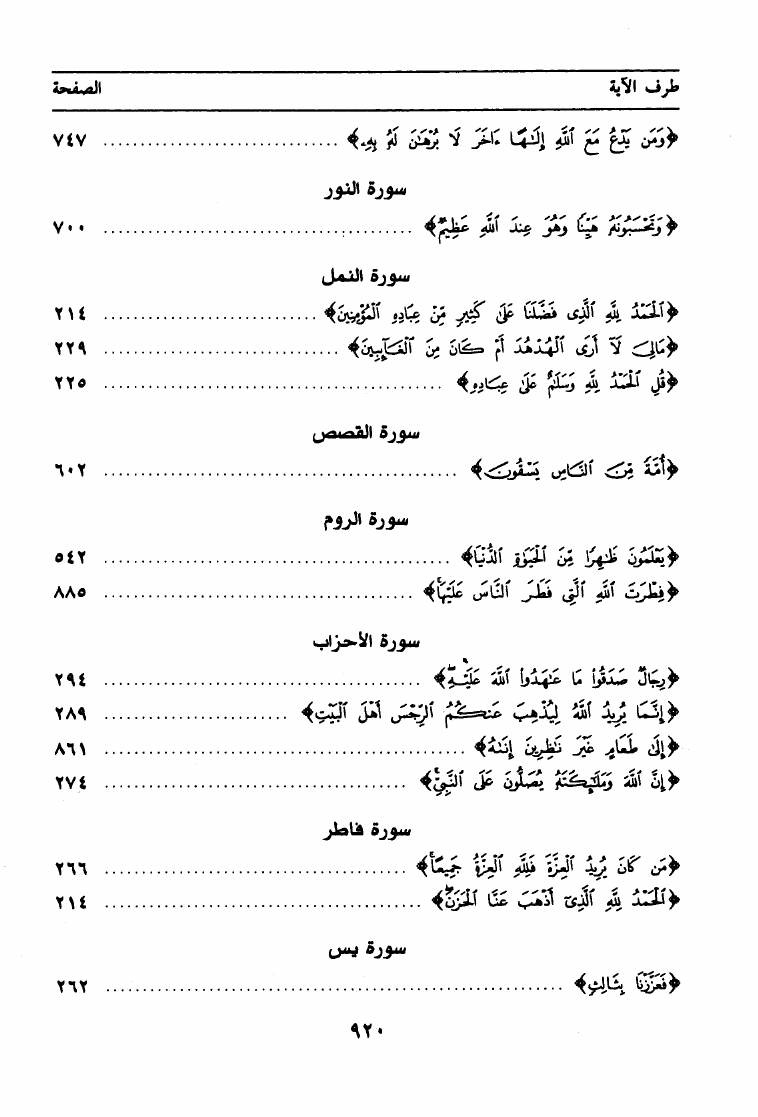 طرف الآية الصفحة
﴿وَمَن يَدْعُ مَعَ ٱللَّهِ إِلَٰهًا ءَاخَرَ لَا بُرْهَٰنَ لَهُۥ بِهِۦ﴾ ................................ ٧٤٧
سورة النور
﴿وَتَحْسَبُونَهُۥ هَيِّنًا وَهُوَ عِندَ ٱللَّهِ عَظِيمٌ﴾ ................................ ٧٠٠
سورة النمل
﴿ٱلْحَمْدُ لِلَّهِ ٱلَّذِى فَضَّلَنَا عَلَىٰ كَثِيرٍ مِّنْ عِبَادِهِ ٱلْمُؤْمِنِينَ﴾ ................................ ٢١٤
﴿مَالِىَ لَآ أَرَى ٱلْهُدْهُدَ أَمْ كَانَ مِنَ ٱلْغَآئِبِينَ﴾ ................................ ٢٢٩
﴿قُلِ ٱلْحَمْدُ لِلَّهِ وَسَلَٰمٌ عَلَىٰ عِبَادِهِ﴾ ................................ ٢٢٥
سورة القصص
﴿أُمَّةً مِّنَ ٱلنَّاسِ يَسْقُونَ﴾ ................................ ٦٠٢
سورة الروم
﴿يَعْلَمُونَ ظَٰهِرًا مِّنَ ٱلْحَيَوٰةِ ٱلدُّنْيَا﴾ ................................ ٥٤٢
﴿فِطْرَتَ ٱللَّهِ ٱلَّتِى فَطَرَ ٱلنَّاسَ عَلَيْهَا﴾ ................................ ٨٨٥
سورة الأحزاب
﴿رِجَالٌ صَدَقُوا۟ مَا عَٰهَدُوا۟ ٱللَّهَ عَلَيْهِ﴾ ................................ ٢٩٤
﴿إِنَّمَا يُرِيدُ ٱللَّهُ لِيُذْهِبَ عَنكُمُ ٱلرِّجْسَ أَهْلَ ٱلْبَيْتِ﴾ ................................ ٢٨٩
﴿إِلَىٰ طَعَامٍ غَيْرَ نَٰظِرِينَ إِنَىٰهُ﴾ ................................ ٨٦١
﴿إِنَّ ٱللَّهَ وَمَلَٰٓئِكَتَهُۥ يُصَلُّونَ عَلَى ٱلنَّبِىِّ﴾ ................................ ٢٧٤
سورة فاطر
﴿مَن كَانَ يُرِيدُ ٱلْعِزَّةَ فَلِلَّهِ ٱلْعِزَّةُ جَمِيعًا﴾ ................................ ٢٦٦
﴿ٱلْحَمْدُ لِلَّهِ ٱلَّذِىٓ أَذْهَبَ عَنَّا ٱلْحَزَنَ﴾ ................................ ٢١٤
سورة يس
﴿فَعَزَّزْنَا بِثَالِثٍ﴾ ................................ ٢٦٢
٩٢٠